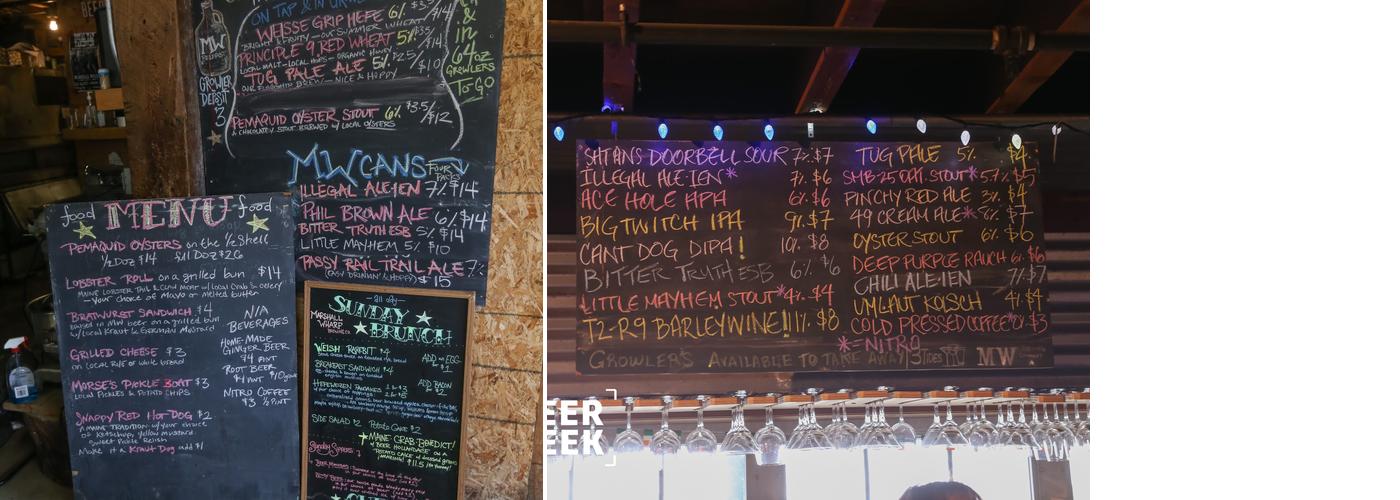 ON TAP & IN
WEISSE GRIP HEFE 6% $14
BRIGHT & FRUITY - OUR SUMMER WHEAT
PRINCIPLE 9 RED WHEAT 5% $14
LOCAL MALT - LOCAL HOPS - ORGANIC HONEY
TUG PALE ALE 5% $10
OUR FLAGSHIP BREW - NICE & HOPPY
PEMAQUID OYSTER STOUT 6% $3.5/$12
A CHOCOLATEY STOUT BREWED w/ LOCAL OYSTERS
MW
GROWLER
DEPOSIT
3
& in
64oz
GROWLERS
TO GO
MW CANS FOUR PACKS
ILLEGAL ALE-IEN 7% $14
PHIL BROWN ALE 6% $14
BITTER TRUTH ESB 5% $14
LITTLE MAYHEM 5% $10
PASSY RAIL TRAIL ALE 7%
(EASY DRINKIN' & HOPPY) $15
food MENU food
PEMAQUID OYSTERS on the 1/2 Shell
1/2 Doz $14 full Doz $26
LOBSTER ROLL on a grilled bun $14
MAINE LOBSTER TAIL & CLAW MEAT w/ local Crab & celery
- Your choice of Mayo or melted butter
BRATWURST SANDWICH $4
basted in MW beer on a grilled bun
w/ local Kraut & GERMAN Mustard
GRILLED CHEESE $3
on Local RYE or White bread
MORSE'S PICKLE BOAT $3
LOCAL PICKLES & POTATO CHIPS
SNAPPY RED HOT DOG $2
A MAINE TRADITION w/ your choice
of Ketchup, yellow mustard
Sweet Pickle Relish
Make it a Kraut Dog add $1
N/A
BEVERAGES
HOME-MADE
GINGER BEER
$4 PINT
ROOT BEER
$4 PINT
NITRO COFFEE
$3 1/2 PINT
all day
SUNDAY
BRUNCH
MARSHALL
WHARF
BREWING CO
WELSH RABBIT $4
BREAKFAST SANDWICH $4
HEFEWEIZEN PANCAKES
ADD an EGG
$1
ADD BACON
$2
SIDE SALAD $2 POTATO CAKE $2
MAINE CRAB BENEDICT!
w/ BEER HOLLANDAISE ON A
POTATO CAKE w/ dressed greens
$11.5
SATANS DOORBELL SOUR 7% $7
ILLEGAL ALE-IEN* 7% $6
ACE HOLE APA 6% $6
BIG TWITCH IPA 9% $7
CANT DOG DIPA! 10% $8
BITTER TRUTH ESB 6% $6
LITTLE MAYHEM STOUT* 4% $4
T2-R9 BARLEYWINE! 11% $8
TUG PALE 5% $4
PINCHY RED ALE $4
49 CREAM ALE* $7
OYSTER STOUT 6% $6
DEEP PURPLE RAUCH 6% $6
CHILI ALE-IEN 7% $7
UMLAUT KOLSCH 4% $4
COLD PRESSED COFFEE* 0% $3
*=NITRO
GROWLERS AVAILABLE TO TAKE AWAY 3 TIDES MW
EER
EEK